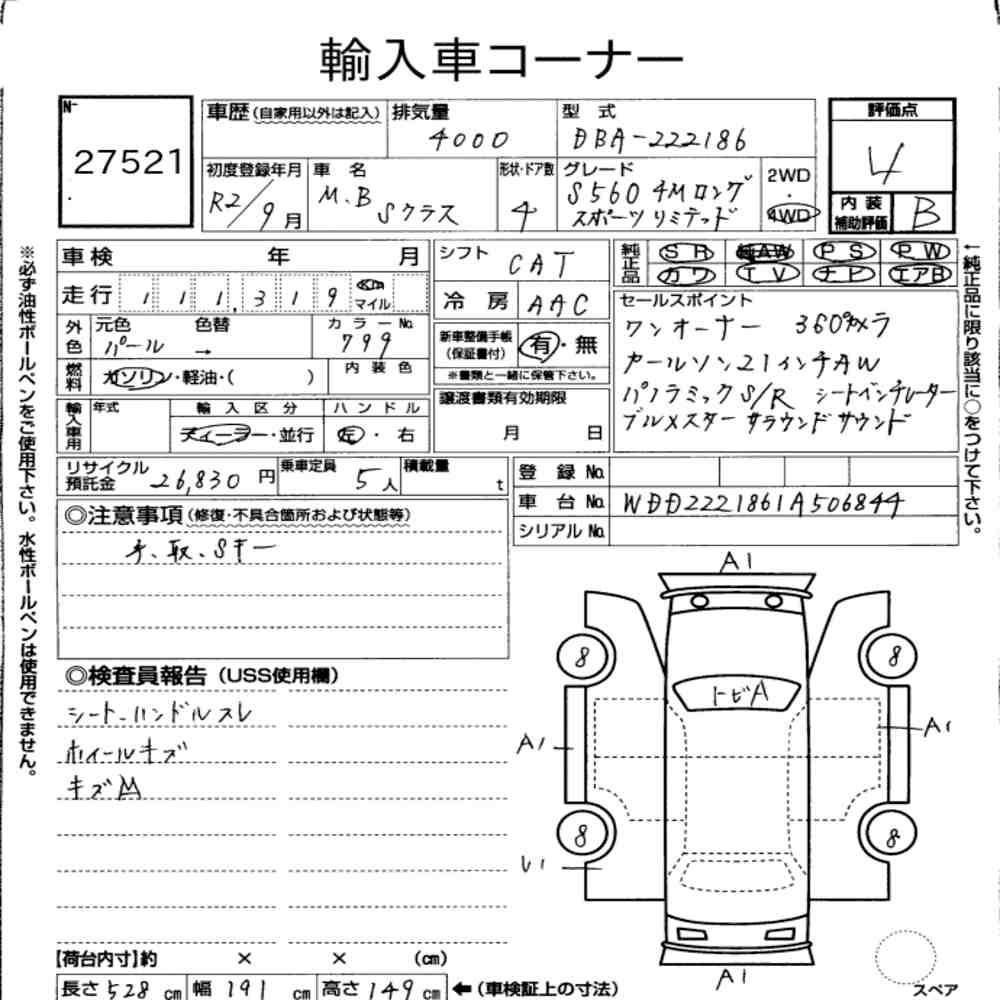 輸入車コーナー
N-
27521
車歴(自家用以外は記入)
排気量
4000
型 式
DBA-222186
評価点
4
初度登録年月
R2/9月
車 名
M.B Sクラス
形状・ドア数
4
グレード
S560 4Mロング
スポーツリミテッド
2WD
・
4WD
内 装
補助評価
B
車検 年 月
シフト
CAT
純正品
SR AW PS PW
カワ TV ナビ エアB
走行 111,319 Km マイル
冷 房
AAC
セールスポイント
ワンオーナー 360°カメラ
カールソン21インチAW
パノラミックS/R シートベンチレーター
ブルメスター サラウンドサウンド
外色
元色 色替
パール →
カラーNo.
799
内 装 色
新車整備手帳
(保証書付)
有・無
※書類と一緒に保管下さい。
燃料
ガソリン・軽油・( )
譲渡書類有効期限
月 日
輸入車用
年式
輸 入 区 分
ディーラー・並行
ハ ン ド ル
左 ・ 右
リサイクル
預託金
26,830 円
乗車定員
5人
積載量
t
登 録 No.
車 台 No. WDD2221861A506844
シリアル No.
◎注意事項(修復・不具合箇所および状態等)
手、取、Sキー
◎検査員報告(USS使用欄)
シート、ハンドルスレ
ホイールキズ
キズ凹
A1
8
8
トビA
A1
A1
8
8
U1
A1
スペア
【荷台内寸】約 × × (cm)
長さ 528 cm 幅 191 cm 高さ 149 cm ←(車検証上の寸法)
※必ず油性ボールペンをご使用下さい。水性ボールペンは使用できません。
←純正品に限り該当に○をつけて下さい。